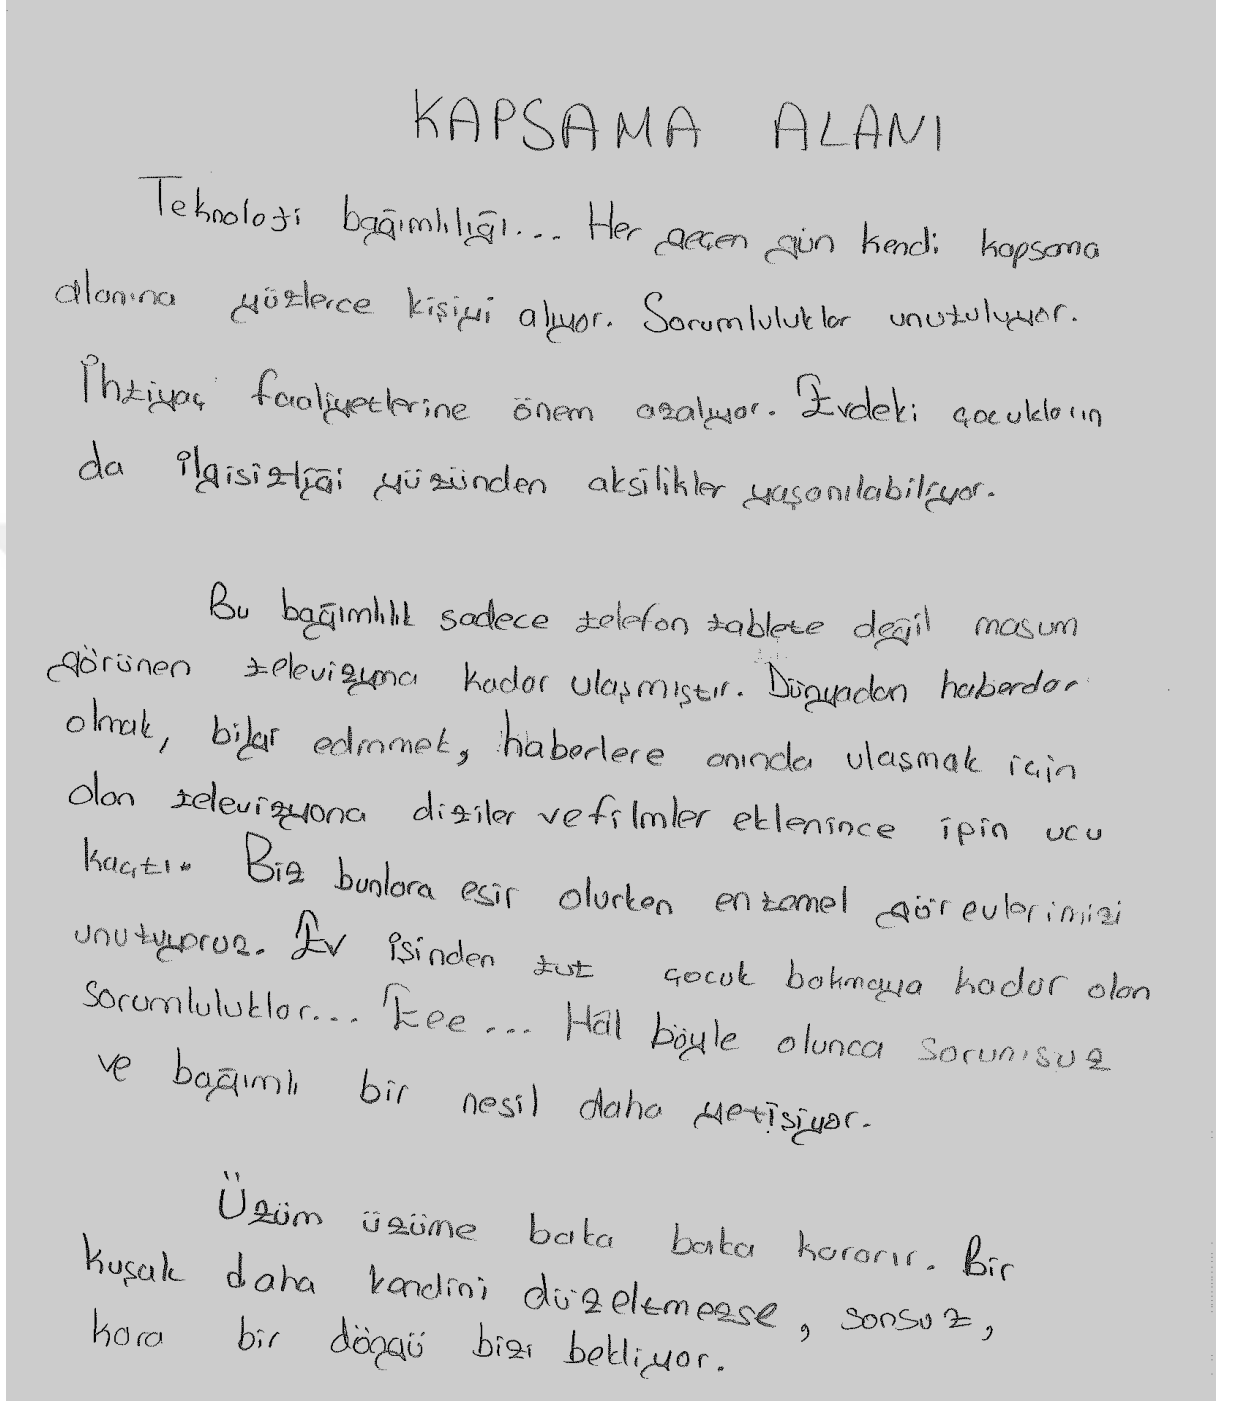 KAPSAMA ALANI
Teknoloji bağımlılığı... Her geçen gün kendi kapsama
alanına yüzlerce kişiyi alıyor. Sorumluluklar unutuluyor.
İhtiyaç faaliyetlerine önem azalıyor. Evdeki çocukların
da ilgisizliği yüzünden aksilikler yaşanılabiliyor.
Bu bağımlılık sadece telefon tablete değil masum
görünen televizyona kadar ulaşmıştır. Dünyadan haberdar
olmak, bilgi edinmek, haberlere anında ulasmak için
olan televizyona diziler ve filmler eklenince ipin ucu
kaçtı. Biz bunlara esir olurken en temel görevlerimizi
unutuyoruz. Ev işinden tut çocuk bakmaya kadar olan
sorumluluklar... Eee... Hâl böyle olunca sorunsuz
ve bağımlı bir nesil daha yetişiyor.
Üzüm üzüme baka baka kararır. Bir
kuşak daha kendini düzeltmezse, sonsuz,
kara bir döngü bizi bekliyor.